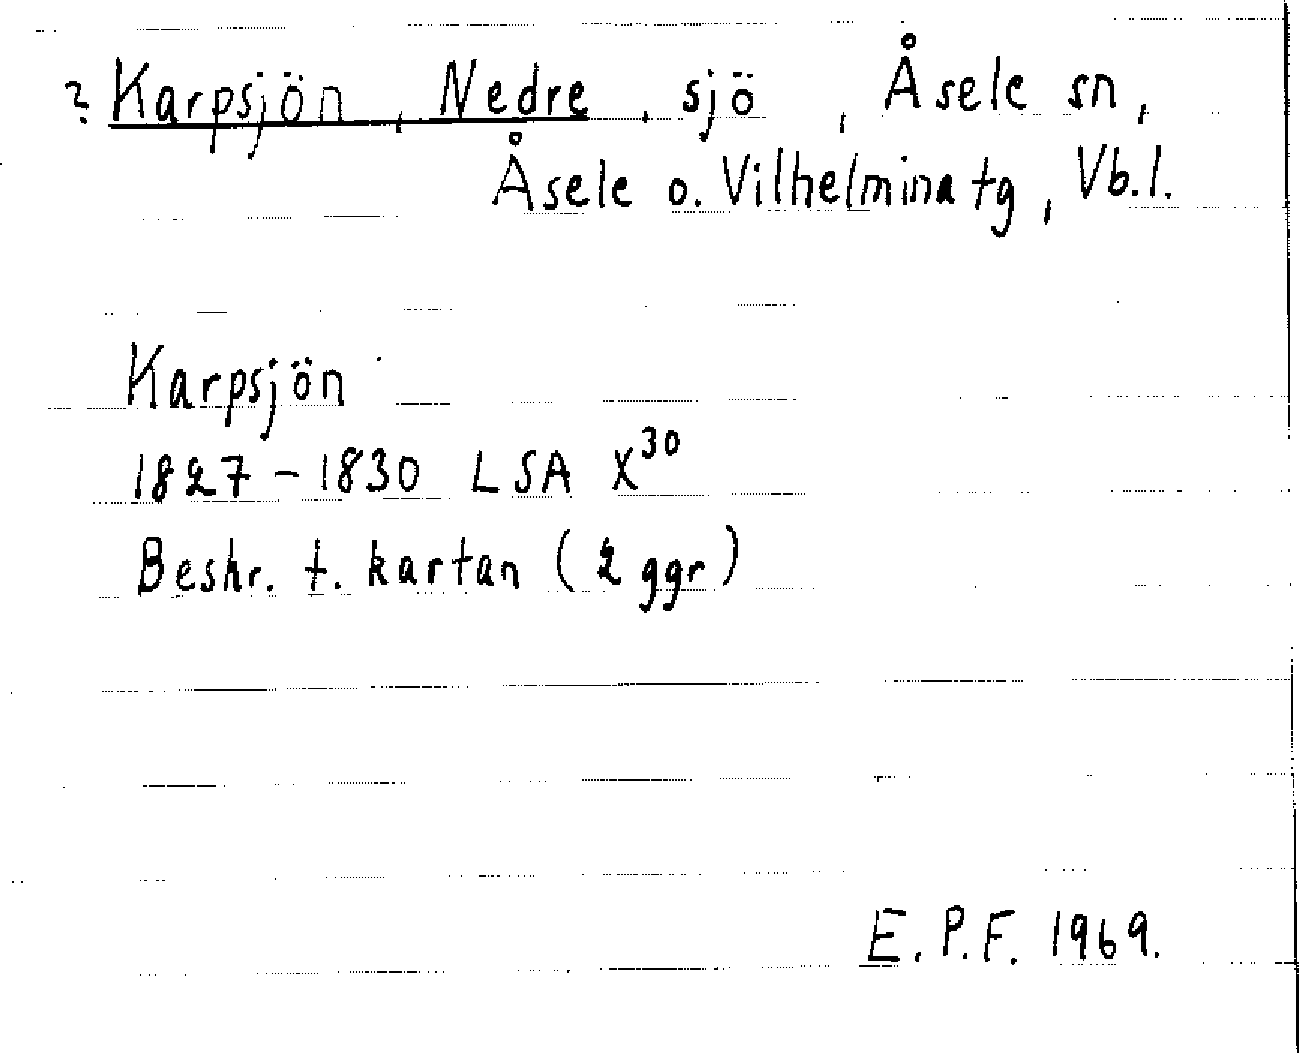 ? Karpsjön, Nedre, sjö, Åsele sn,
Åsele o. Vilhelmina tg, Vb.l.
Karpsjön
1827-1830 LSA X³⁰
Beskr. t. kartan (2 ggr)
E.P.F. 1969.